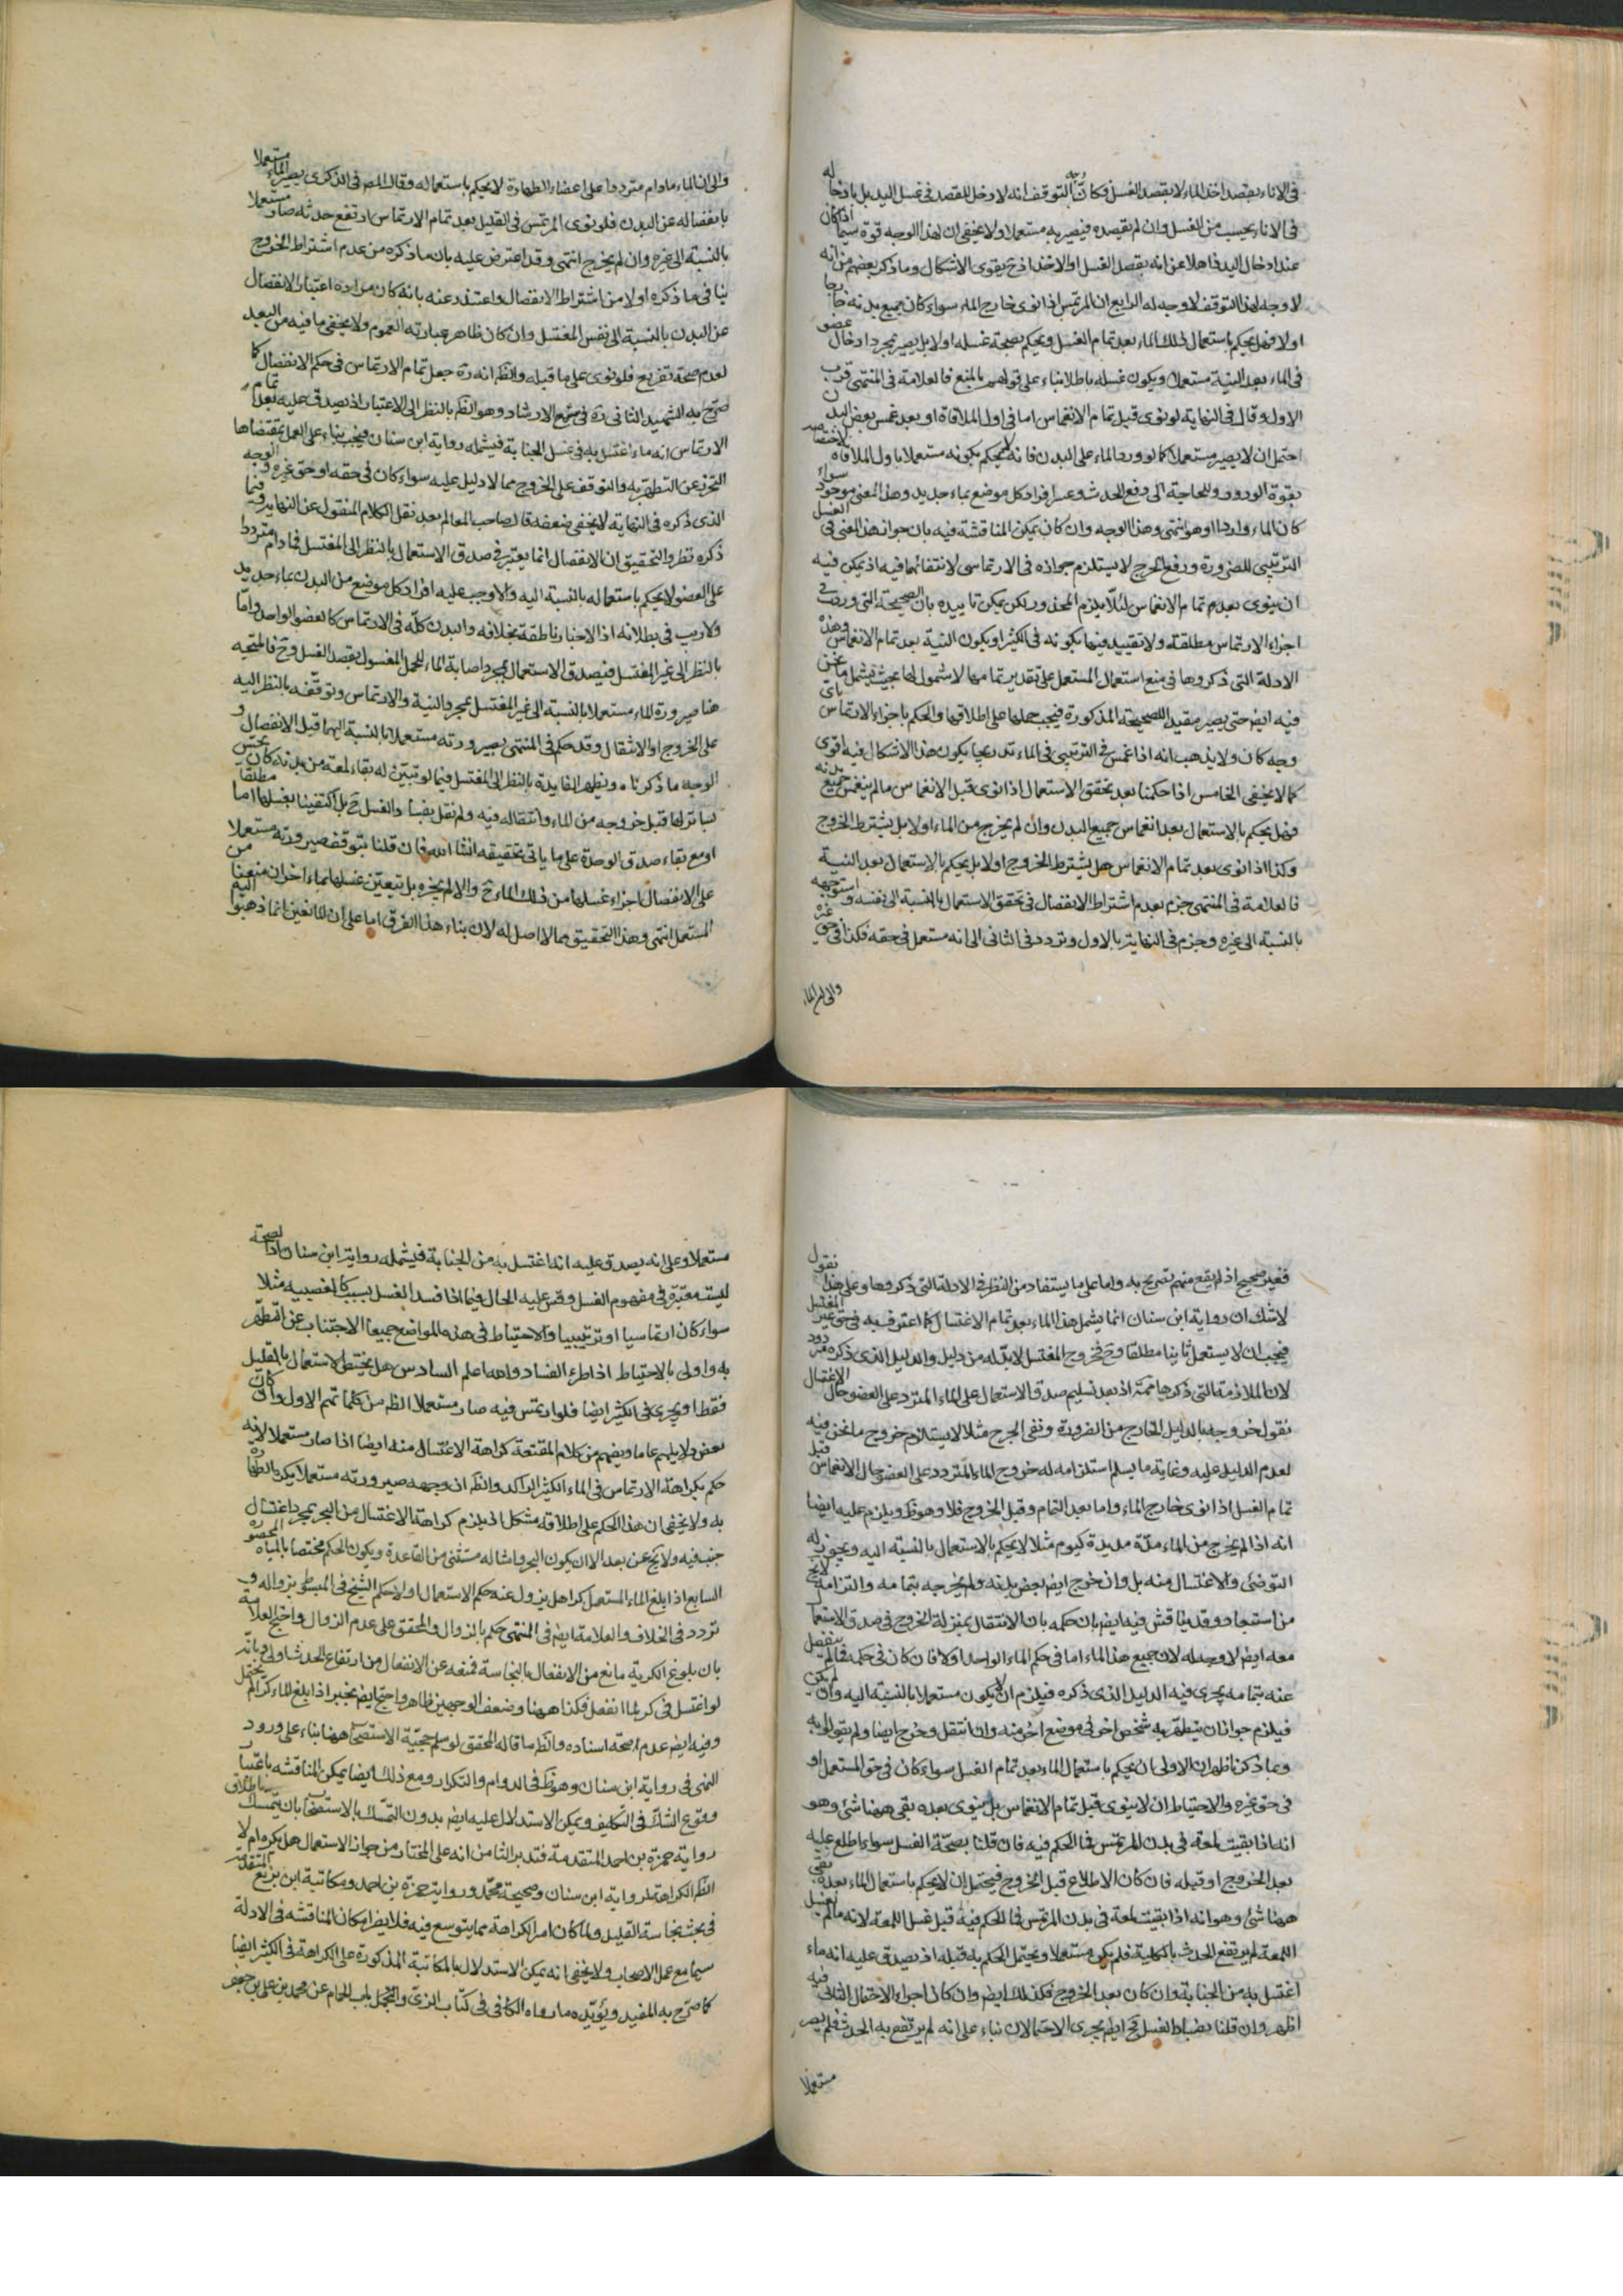 في الاناء بقصد اخذ الماء لا بقصد الغسل فكانّ وجه التوقف انه لا دخل للقصد في غسل اليد بل بادخاله
في الاناء يحسب من الغسل وان لم يقصده فيصير به مستعملا ولا يخفى ان لهذا الوجه قوة سيما اذا كان
عند ادخال اليد ذاهلا عن انه بقصد الغسل او الاخذ اذ ح يقوى الاشكال وما ذكر بعضهم من انه
لا وجه لهذا التوقف لا وجه له الرابع ان المرتمس اذا نوى خارج الماء سواء كان جميع بدنه خارجا
اولا فهل يحكم باستعمال ذلك الماء بعد تمام الغسل ويحكم بصحة غسله اولا بل يصير بمجرد ادخال عضو
في الماء بعد النية مستعملا ويكون غسله باطلا بناء على قولهم بالمنع فالعلامة في المنتهى قرب
الاول وقال في النهاية لو نوى قبل تمام الانغماس اما في اول الملاقاة او بعد غمس بعض البدن
احتمل ان لا يصير مستعملا كما لو ورد الماء على البدن فانه لا يحكم بكونه مستعملا باول الملاقاة لاختصاصه
بقوة الورود وللحاجة الى رفع الحدث وعسر افراد كل موضع بماء جديد وهذا المعنى موجود سواء
كان الماء واردا او هو انتهى وهذا الوجه وان كان يمكن المناقشة فيه بان جواز هذا المعنى في الغسل
الترتيبي للضرورة ورفع الحرج لا يستلزم جوازه في الارتماسي لانتفائهما فيه اذ يمكن فيه
ان ينوي بعد تمام الانغماس لئلّا يلزم المحذور لكن يمكن تاييده بان الصحيحة التي وردت في
اجزاء الارتماس مطلقة ولا تقييد فيها بكونه في الكثير او بكون النية بعد تمام الانغماس وهذه
الادلة التي ذكروها في منع استعمال المستعمل على تقدير تمامها لا شمول لها بحيث يشمل ما نحن
فيه ايض حتى يصير مقيد للصحيحة المذكورة فيجب حملها على اطلاقها والحكم باجزاء الارتماس باي
وجه كان ولا يذهب انه اذا غمس في الترتيبي في الماء تدريجا يكون هذا الاشكال فيه اقوى
كما لا يخفى الخامس اذا حكمنا بعد تحقق الاستعمال اذا نوى قبل الانغماس ما لم ينغمس جميع بدنه
فهل يحكم بالاستعمال بعد انغماس جميع البدن وان لم يخرج من الماء اولا بل يشترط الخروج
وكذا اذا نوى بعد تمام الانغماس هل يشترط الخروج اولا بل يحكم بالاستعمال بعد النية
فالعلامة في المنتهى جزم بعدم اشتراط الانفصال في تحقق الاستعمال بالنسبة الى نفسه واستوجهه
بالنسبة الى غيره وجزم في النهاية بالاول وتردد في الثاني الى انه مستعمل في حقه فكذا في حق غيره
والى ان الماء
والى ان الماء مادام مترددا على اعضاء الطهارة لا يحكم باستعماله وقال المص في الذكرى يصير الماء مستعملا
بانفصاله عن البدن فلو نوى المرتمس في القليل بعد تمام الارتماس ارتفع حدثه صار مستعملا
بالنسبة الى غيره وان لم يخرج انتهى وقد اعترض عليه بان ما ذكره من عدم اشتراط الخروج
ينافي ما ذكره اولا من اشتراط الانفصال واعتذر عنه بانه كان مراده اعتبار الانفصال
عن البدن بالنسبة الى نفس المغتسل وان كان ظاهر عبارته العموم ولا يخفى ما فيه من البعد
لعدم صحة تفريع فلو نوى على ما قبله والظ انه ره جعل تمام الارتماس في حكم الانفصال كما
صرّح به الشهيد الثاني ره في شرح الارشاد وهو الظ بالنظر الى الاعتبار اذ يصدق عليه بعد تمام
الارتماس انه ماء اغتسل به في غسل الجنابة فيشمله رواية ابن سنان فيجب بناء على العمل بمقتضاها
التحرز عن التطهر به والتوقف على الخروج مما لا دليل عليه سواء كان في حقه او حق غيره والوجه
الذي ذكره في النهاية لا يخفى ضعفه قال صاحب المعالم بعد نقل الكلام المنقول عن النهاية وفيما
ذكره نظر والتحقيق ان الانفصال انما يعتبر في صدق الاستعمال بالنظر الى المغتسل فما دام مترددا
على العضو لا يحكم باستعماله بالنسبة اليه والا وجب عليه افراد كل موضع من البدن بماء جديد
ولا ريب في بطلانه اذ الاخبار ناطقة بخلافه والبدن كلّه في الارتماس كالعضو الواحد وامّا
بالنظر الى غير المغتسل فيصدق الاستعمال بمجرد اصابة الماء للمحل المغسول بقصد الغسل وح فالمتجه
هنا صيرورة الماء مستعملا بالنسبة الى غير المغتسل بمجرد النية والارتماس وتوقفه بالنظر اليه
على الخروج او الانتقال وقد حكم في المنتهى بصيرورته مستعملا بالنسبة اليهما قبل الانفصال و
الوجه ما ذكرناه ويظهر الفايدة بالنظر الى المغتسل فيما لو تبيّن له بقاء لمعة من بدنه كان يحسّ
نباترها قبل خروجه من الماء وانتقاله فيه ولم نقل بفساد الغسل ح بل اكتفينا بغسلها اما مطلقا
او مع بقاء صدق الوحدة على ما ياتي تحقيقه انشا الله فان قلنا بتوقف صيرورته مستعملا
على الانفصال اجزاء غسلها من ذلك الماء ح والا لم يجزه بل يتعين غسلها بماء اخر ان منعنا من
المستعمل انتهى وهذا التحقيق مما لا اصل له لان بناء هذا الفرق اما على ان المانعين انما ذهبوا اليه
فغير صحيح اذ لم يقع منهم تصريح به واما على ما يستفاد من النظر في الادلة التي ذكروها وعلى هذا نقول
لا شك ان رواية ابن سنان انما يشمل هذا الماء بعد تمام الاغتسال كما اعترف به في حق غير المغتسل
فيجب ان لا يستعمل ثانيا مطلقا وح فخروج المغتسل لا بدّ له من دليل والدليل الذي ذكره مردود
لان الملازمة التي ذكرها ممنوعة اذ بعد تسليم صدق الاستعمال على الماء المتردد على العضو حال الاغتسال
نقول خروجه بالدليل الخارج من الضرورة ونفي الحرج مثلا لا يستلزم خروج ما نحن فيه
لعدم الدليل عليه وغاية ما يسلم استلزامه له خروج الماء المتردد على العضو حال الانغماس قبل
تمام الغسل اذا نوى خارج الماء واما بعد التمام وقبل الخروج فلا وهو ظ ويلزم عليه ايضا
انه اذا لم يخرج من الماء مدّة مديدة كيوم مثلا لا يحكم بالاستعمال بالنسبة اليه ويجوز له
التوضي والاغتسال منه بل وان خرج ايض بعض بدنه ولم يخرجه بتمامه والتزامه لا يخ
من استبعاد وقد يناقش فيه ايض بان حكمه بان الانتقال بمنزلة الخروج في صدق الاستعمال
معه ايض لا وجه له لان جميع هذا الماء اما في حكم الماء الواحد اولا فان كان في حكمه فما لم ينفصل
عنه بتمامه يجري فيه الدليل الذي ذكره فيلزم ان لا يكون مستعملا بالنسبة اليه وان لم يكن
فيلزم جواز ان يتطهر به شخص اخر في موضع اخر منه وان انتقل وخرج ايضا ولم يقولوا به
وبما ذكرنا ظهر ان الاولى ان يحكم باستعمال الماء بعد تمام الغسل سواء كان في حق المستعمل او
في حق غيره والاحتياط ان لا ينوي قبل تمام الانغماس بل ينوي بعده بقي ههنا شئ وهو
انه اذا بقيت لمعة في بدن المرتمس فما الحكم فيه فان قلنا بصحّة الغسل سواء اطلع عليه
بعد الخروج او قبله فان كان الاطلاع قبل الخروج فيحتمل ان لا يحكم باستعمال الماء بعده بقي
ههنا شئ وهو انه اذا بقيت لمعة في بدن المرتمس فما الحكم فيه قبل غسل اللمعة لانه ما لم يغسل
اللمعة لم يرتفع الحدث بالكلية فلم يكن مستعملا ويحتمل الحكم به قبله اذ يصدق عليه انه ماء
اغتسل به من الجنابة وان كان بعد الخروج فكذلك ايض وان كان اجراء الاحتمال الثاني فيه
اظهر وان قلنا بفساد الغسل فح ايض يجري الاحتمالان بناء على انه لم يرتفع به الحدث فلم يصر
مستعملا
مستعملا وعلى انه يصدق عليه انه اغتسل به من الجنابة فيشمله رواية ابن سنان اذ الصحة
ليست معتبرة في مفهوم الغسل وقس عليه الحال فيما اذا فسد الغسل بسبب كالغصبية مثلا
سواء كان ارتماسيا او ترتيبيا والاحتياط في هذه المواضع جميعا الاجتناب عن التطهر
به واولى بالاحتياط اذا طرء الفساد والله اعلم السادس هل يختص الاستعمال بالقليل
فقط او يجري في الكثير ايضا فلو ارتمس فيه صار مستعملا الظ من كلماتهم الاول وان كان
بعض دلايلهم عاما ويفهم من كلام المقنعة كراهة الاغتسال منه ايضا اذا صار مستعملا لانه
حكم بكراهة الارتماس في الماء الكثير الراكد والظ ان وجهه صيرورته مستعملا يكره الطهارة
به ولا يخفى ان هذا الحكم على اطلاقه مشكل اذ يلزم كراهة الاغتسال من البحر بمجرد اغتسال
جنب فيه ولا يخ عن بعد الا ان يكون البحر وامثاله مستثنى من القاعدة ويكون الحكم مختصا بالمياه المحصورة
السابع اذا بلغ الماء المستعمل كرا هل يزول عنه حكم الاستعمال اولا حكم الشيخ في المبسوط بزواله و
تردد في الخلاف والعلامة ايض في المنتهى حكم بالزوال والمحقق على عدم الزوال واحتج العلامة
بان بلوغ الكرية مانع من الانفعال بالنجاسة فمنعه عن الانفعال من ارتفاع الحدث اولى وبانّه
لو اغتسل في كر لما انفعل فكذا ههنا وضعف الوجهين ظاهر واحتج ايض بخبر اذا بلغ الماء كرا لم يحتمل
وفيه ايض عدم صحة اسناده والظ ما قاله المحقق لو سلم حجيّة الاستصحاب ههنا بناء على ورود
النهي في رواية ابن سنان وهو ظ في الدوام والتكرار ومع ذلك ايضا يمكن المناقشة باعتبار
وقوع الشك في التكليف ويمكن الاستدلال عليه ايض بدون التمسّك بالاستصحاب بان يتمسك باطلاق
رواية حمزة بن احمد المتقدمة فتدبر الثامن انه على المختار من جواز الاستعمال هل يكره ام لا
الظ الكراهة لرواية ابن سنان وصحيحة محمد ورواية حمزة بن احمد ومكاتبة ابن بزيع المتقدمة
في بحث نجاسة القليل ولما كان امر الكراهة مما يتوسع فيه فلا يضر امكان المناقشة في الادلة
سيما مع عمل الاصحاب ولا يخفى انه يمكن الاستدلال بالمكاتبة المذكورة على الكراهة في الكثير ايضا
كما صرّح به المفيد ويؤيّده ما رواه الكافي في كتاب الزي والتجمل باب الحمام عن محمد بن علي بن جعفر